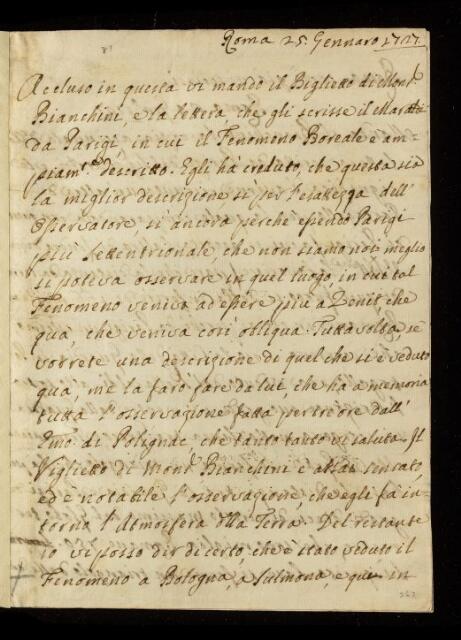 Roma 25. Gennaro 1727
Accluso in questa vi mando il Biglietto di Mons.r
Bianchini, e la lettera, che gli scrisse il Maraldi
da Parigi, in cui il Fenomeno Boreale è am-
piam.te descritto. Egli hà creduto, che questa sia
la miglior descrizione sì per l'esattezza dell'
Osservatore, sì ancora perche essendo Parigi
più Settentrionale, che non siamo noi meglio
si poteva osservare in quel luogo, in cui tal
Fenomeno veniva ad essere più a Zenit che
quà, che veniva così obliqua. Tuttavolta, se
vorrete una descrizione di quel che si è veduto
quà, me la farò fare da lui, che ha a memoria
tutta l'osservazione fatta per tre ore dall'
Emo di Polignac che tanto tanto vi saluta. Il
Viglietto di Mons.r Bianchini è assai sensato,
ed è notabile l'osservazione, che egli fà in-
torno l'Atmosfera della Terra. Del restante
io vi posso dir di certo, che è stato veduto il
Fenomeno a Bologna, a Sulmona, e qui in